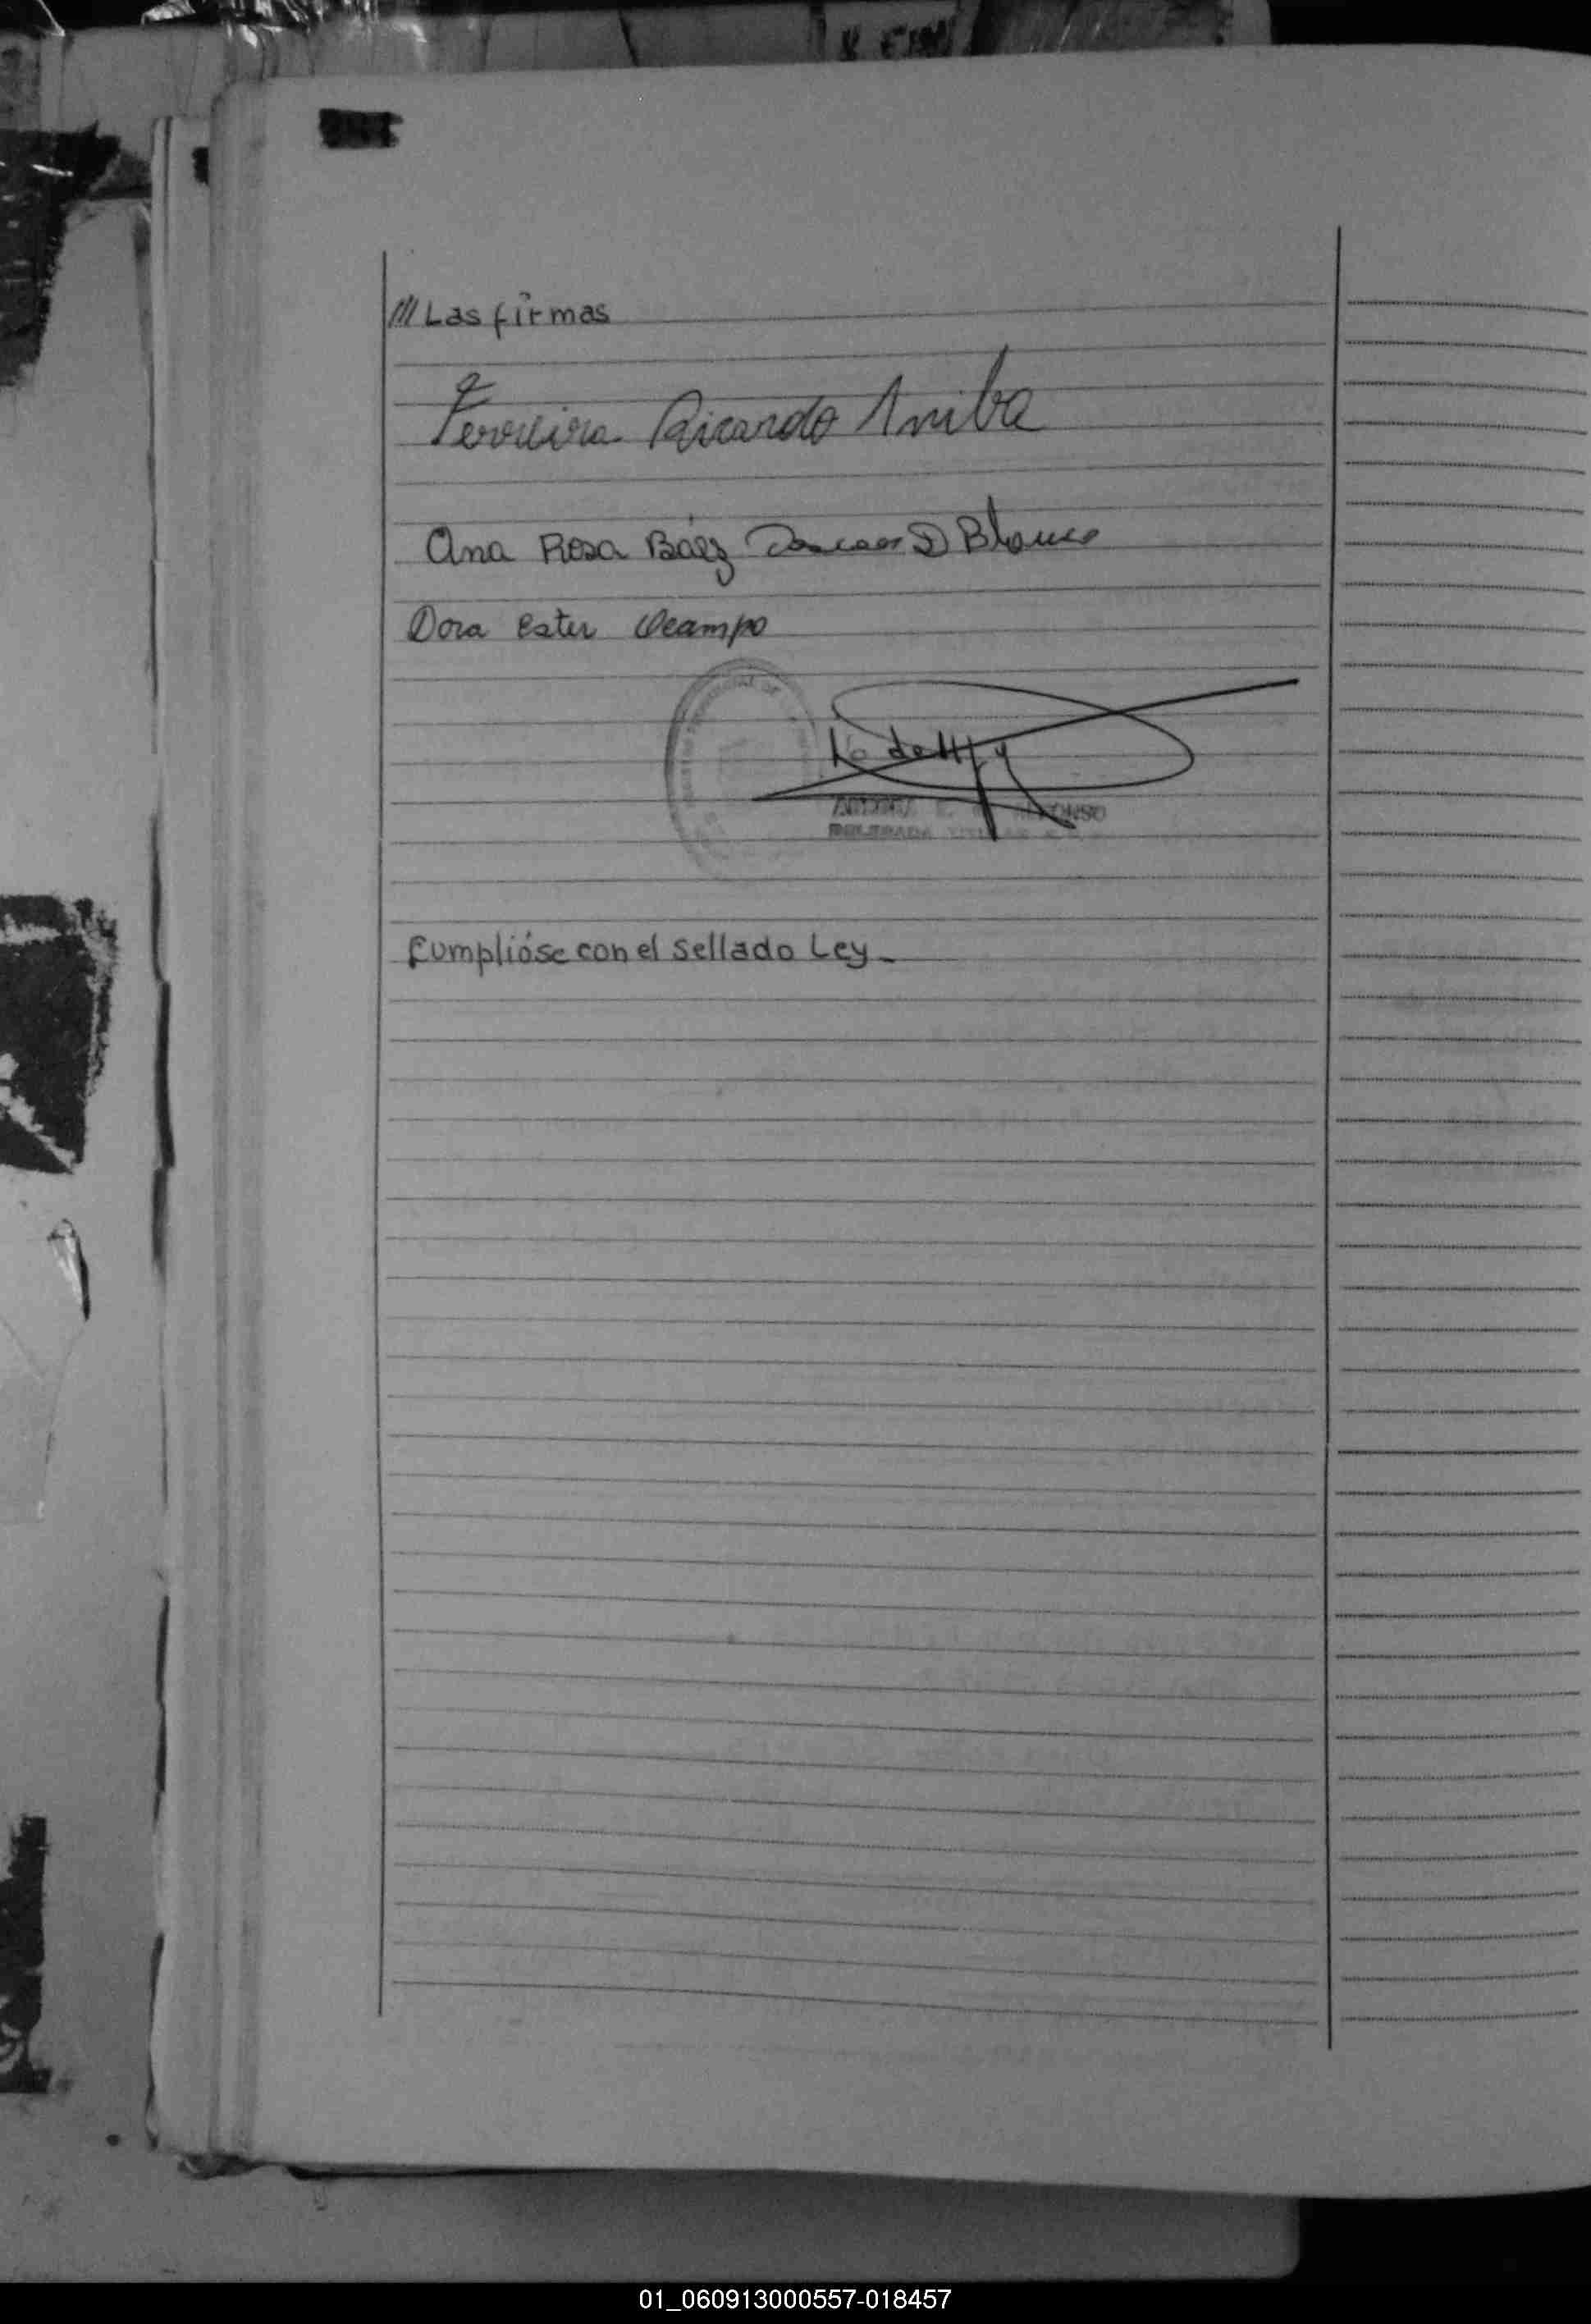 /// Las firmas
Ferreira Ricardo Aniba
Ana Rosa Báez D Blanco
Dora Ester Ocampo
ALFONSO
DELEGADA
Cumplióse con el sellado Ley_
01_060913000557-018457